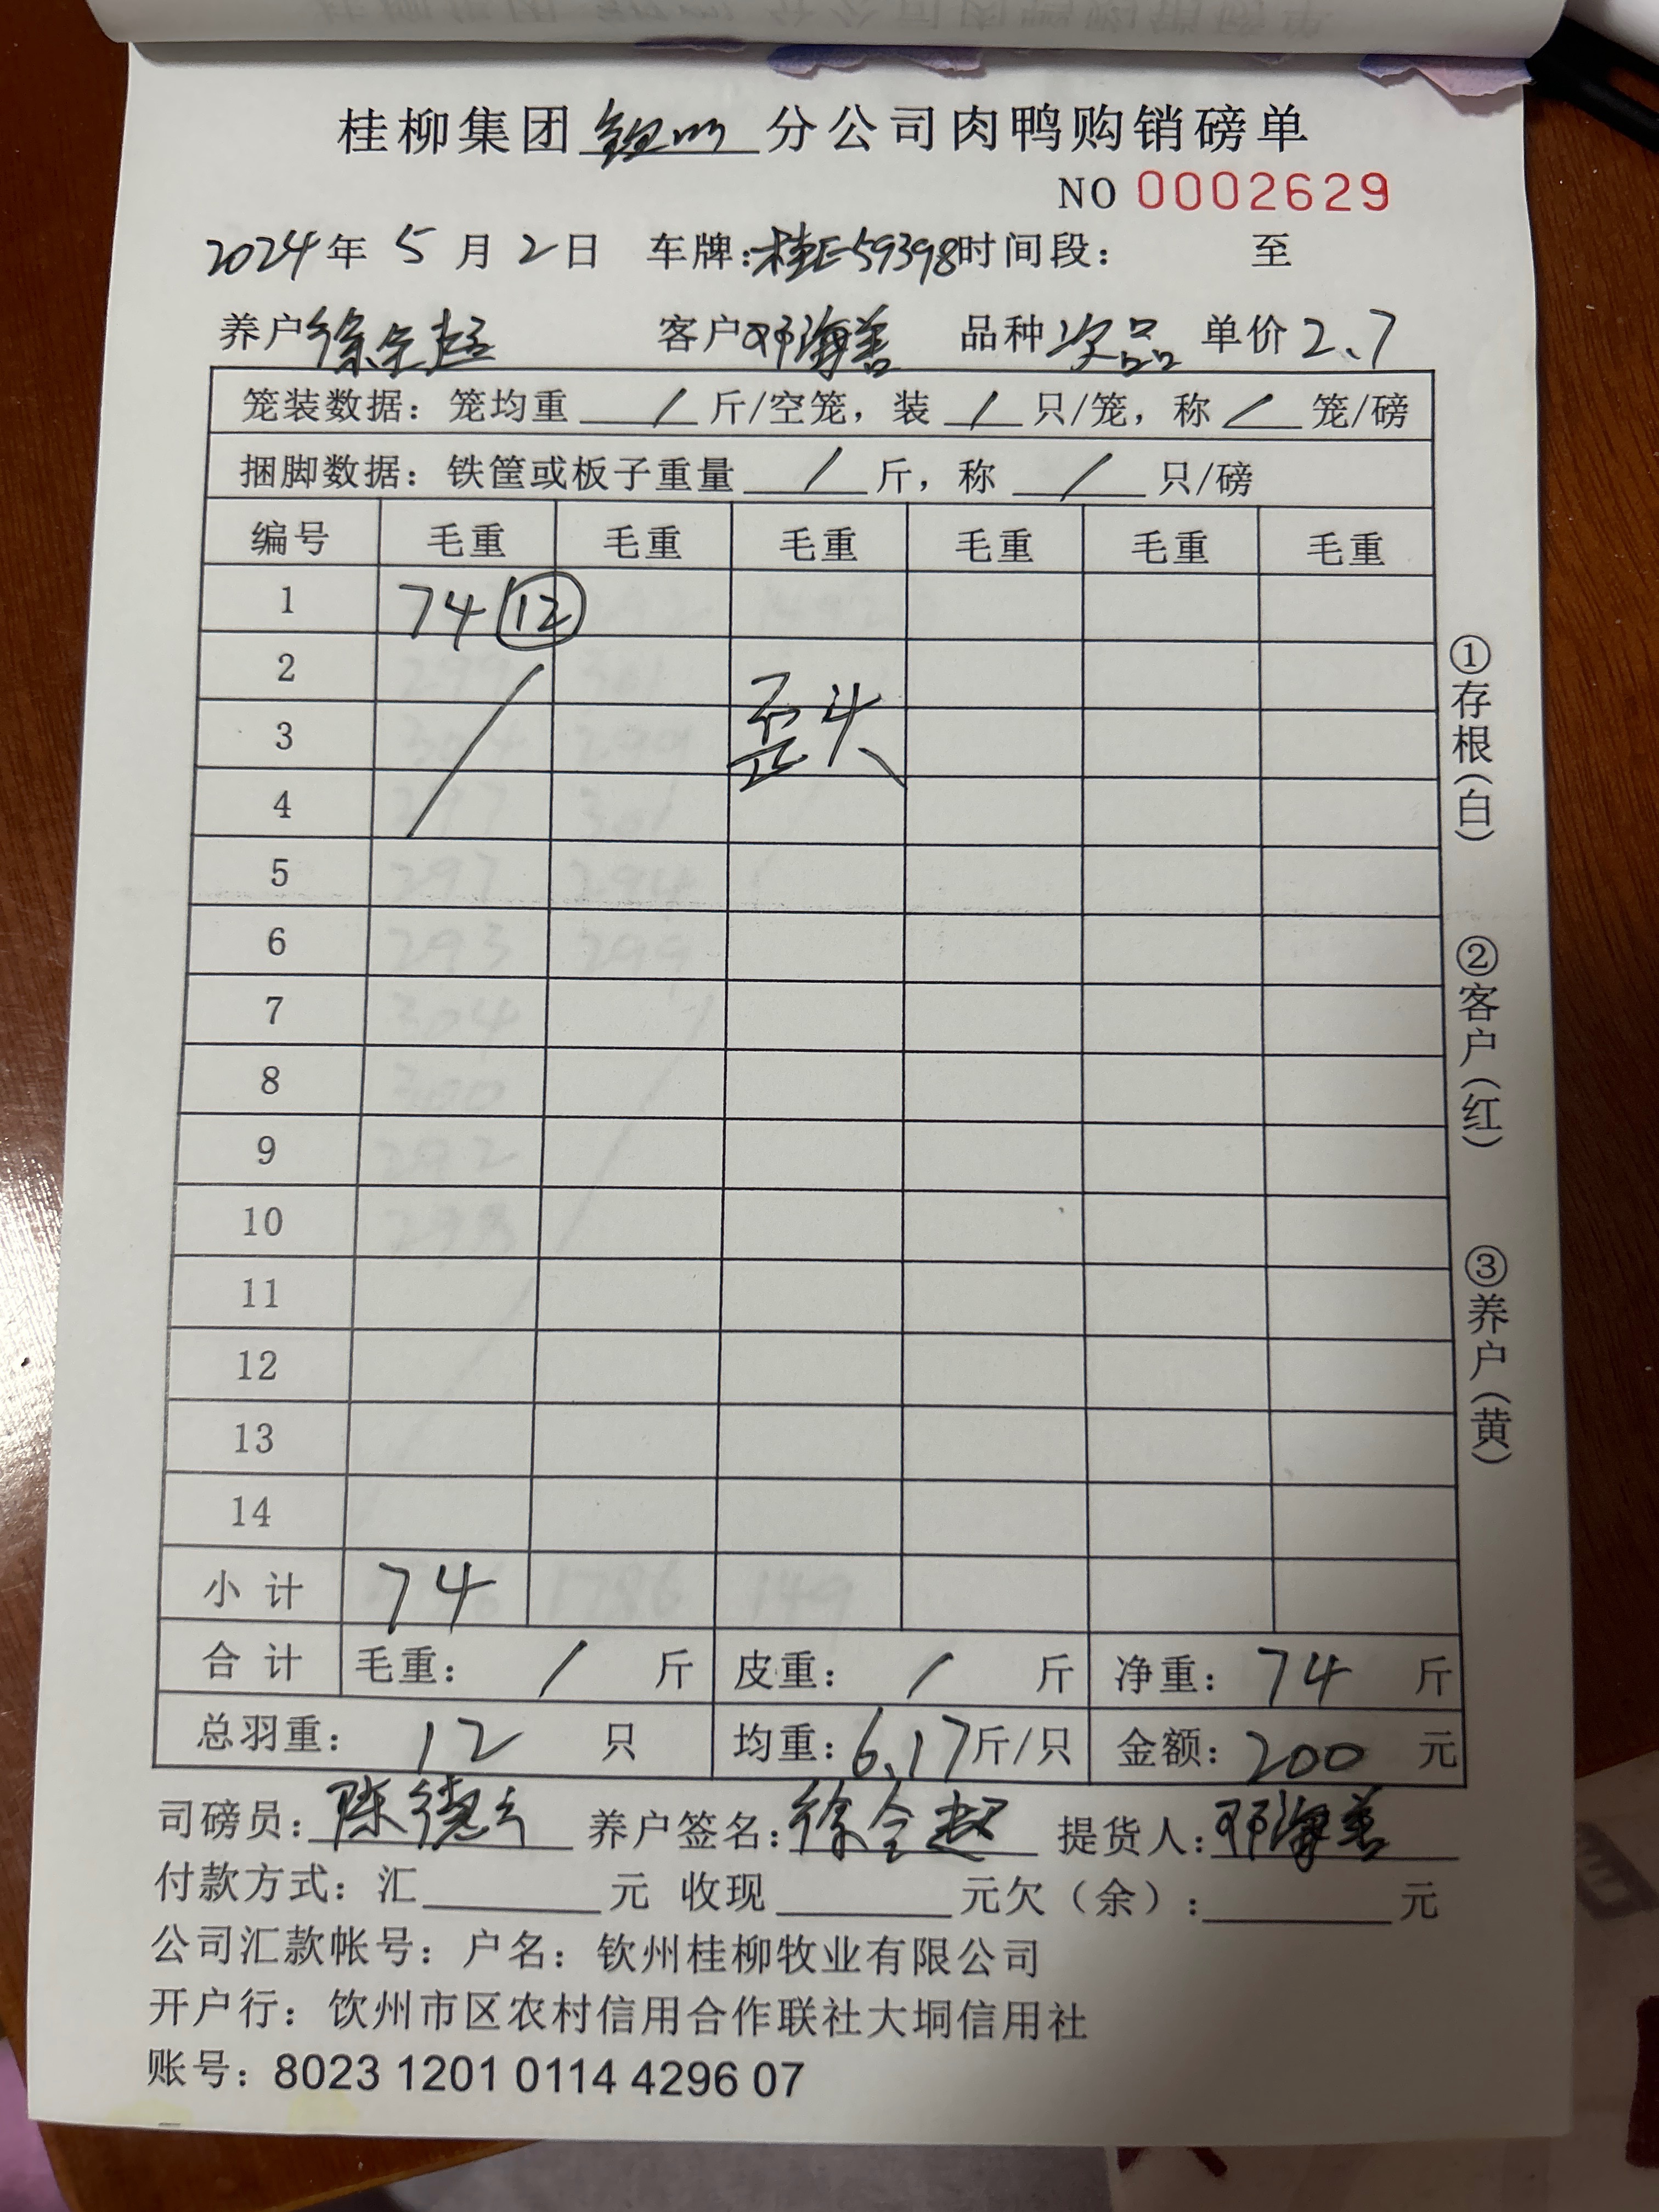 桂柳集团钦州分公司肉鸭购销磅单
NO 0002629
2024年 5月2日 车牌:桂E59398时间段: 至
养户徐全赵 客户邓海善 品种次品 单价2.7
笼装数据: 笼均重 / 斤/空笼, 装 / 只/笼, 称 / 笼/磅
捆脚数据: 铁筐或板子重量 / 斤, 称 / 只/磅
编号 毛重 毛重 毛重 毛重 毛重 毛重
1 74 ⑫
2
歪头
3
4
5
6
7
8
9
10
11
12
13
14
小计 74
合计 毛重: / 斤 皮重: / 斤 净重: 74 斤
总羽重: 12 只 均重: 6.17斤/只 金额: 200 元
司磅员: 养户签名:徐全赵 提货人:邓海善
付款方式: 汇 元 收现 元欠(余): 元
公司汇款帐号: 户名: 钦州桂柳牧业有限公司
开户行: 钦州市区农村信用合作联社大垌信用社
账号: 8023 1201 0114 4296 07
①存根(白)
②客户(红)
③养户(黄)